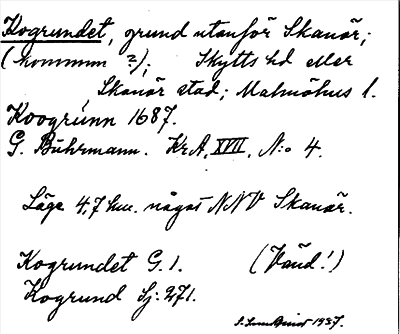 Kogrundet, grund utanför Skanör;
(kommun ?); Skytts hd eller
Skanör stad; Malmöhus l.
Koogrúnn 1687.
G. Buhrmann. KrA, XVII, N:o 4.
Läge 4,7 km. något NNV Skanör.
Kogrundet G. 1. (Vänd!)
Kogrund Sj. 271.
1937.